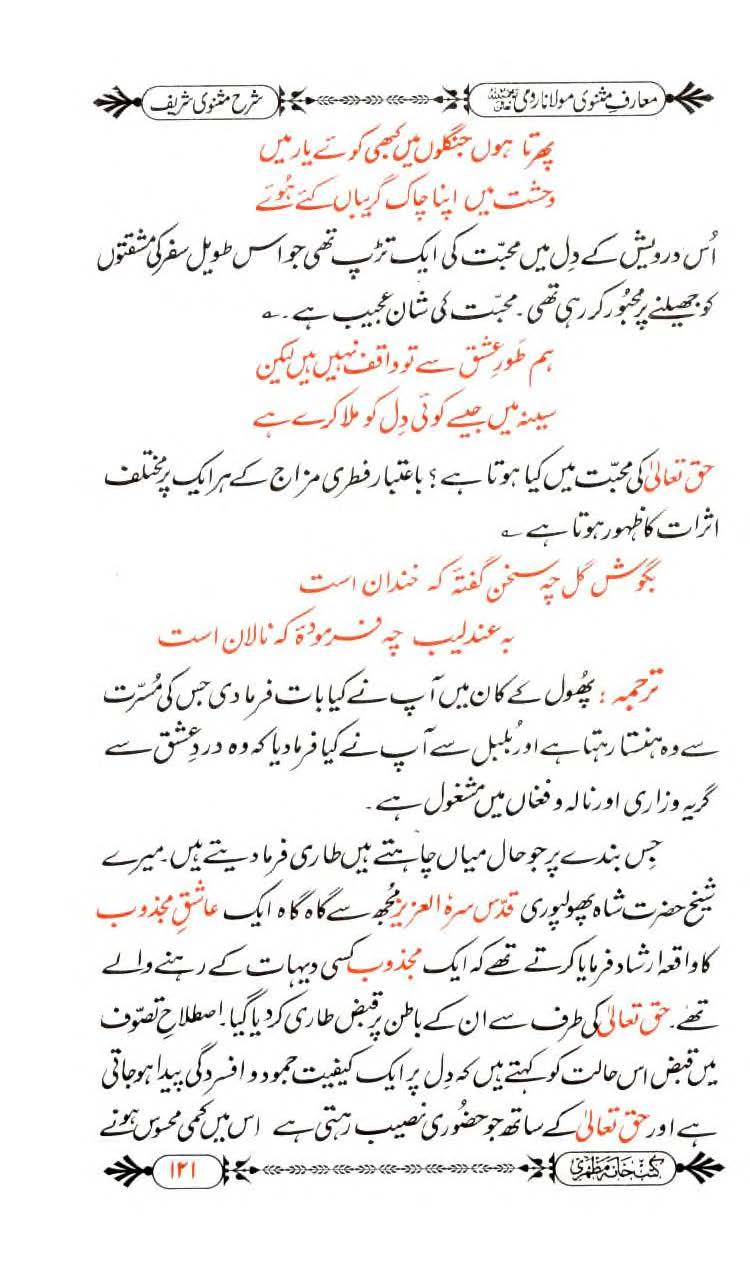 معارفِ مثنوی مولانا رومی رحمۃ اللہ علیہ
شرح مثنوی شریف
پھرتا ہوں جنگلوں میں کبھی کوئے یار میں
وحشت میں اپنا چاک گریباں کئے ہُوئے
اُس درویش کے دِل میں محبّت کی ایک تڑپ تھی جو اس طویل سفر کی مشقتوں
کو جھیلنے پر مجبُور کر رہی تھی۔ محبّت کی شان عجیب ہے۔ ؎
ہم طَورِ عشق سے تو واقف نہیں ہیں لیکن
سینہ میں جیسے کوئی دِل کو ملا کرے ہے
حق تعالیٰ کی محبّت میں کیا ہوتا ہے؟ باعتبار فطری مزاج کے ہر ایک پر مختلف
اثرات کا ظہور ہوتا ہے ؎
بگوش گل چہ سخن گفتۂ کہ خندان است
بہ عندلیب چہ فرمودۂ کہ نالان است
ترجمہ : پھُول کے کان میں آپ نے کیا بات فرما دی جس کی مُسرّت
سے وہ ہنستا رہتا ہے اور بُلبل سے آپ نے کیا فرما دیا کہ وہ دردِ عشق سے
گریہ وزاری اور نالہ و فغاں میں مشغول ہے۔
جِس بندے پر جو حال میاں چاہتے ہیں طاری فرما دیتے ہیں۔ میرے
شیخ حضرت شاہ پھولپوری قدّس سرہٗ العزیز مجُھ سے گاہ گاہ ایک عاشقِ مجذوب
کا واقعہ ارشاد فرمایا کرتے تھے کہ ایک مجذوب کسی دیہات کے رہنے والے
تھے۔ حق تعالیٰ کی طرف سے ان کے باطن پر قبض طاری کر دیا گیا۔ اصطلاحِ تصوّف
میں قبض اس حالت کو کہتے ہیں کہ دِل پر ایک کیفیت جمود و افسردگی پیدا ہوجاتی
ہے اور حق تعالیٰ کے ساتھ جو حضُوری نصیب رہتی ہے اس میں کمی محسوس ہونے
کتب خانہ مظہری
۱۲۱